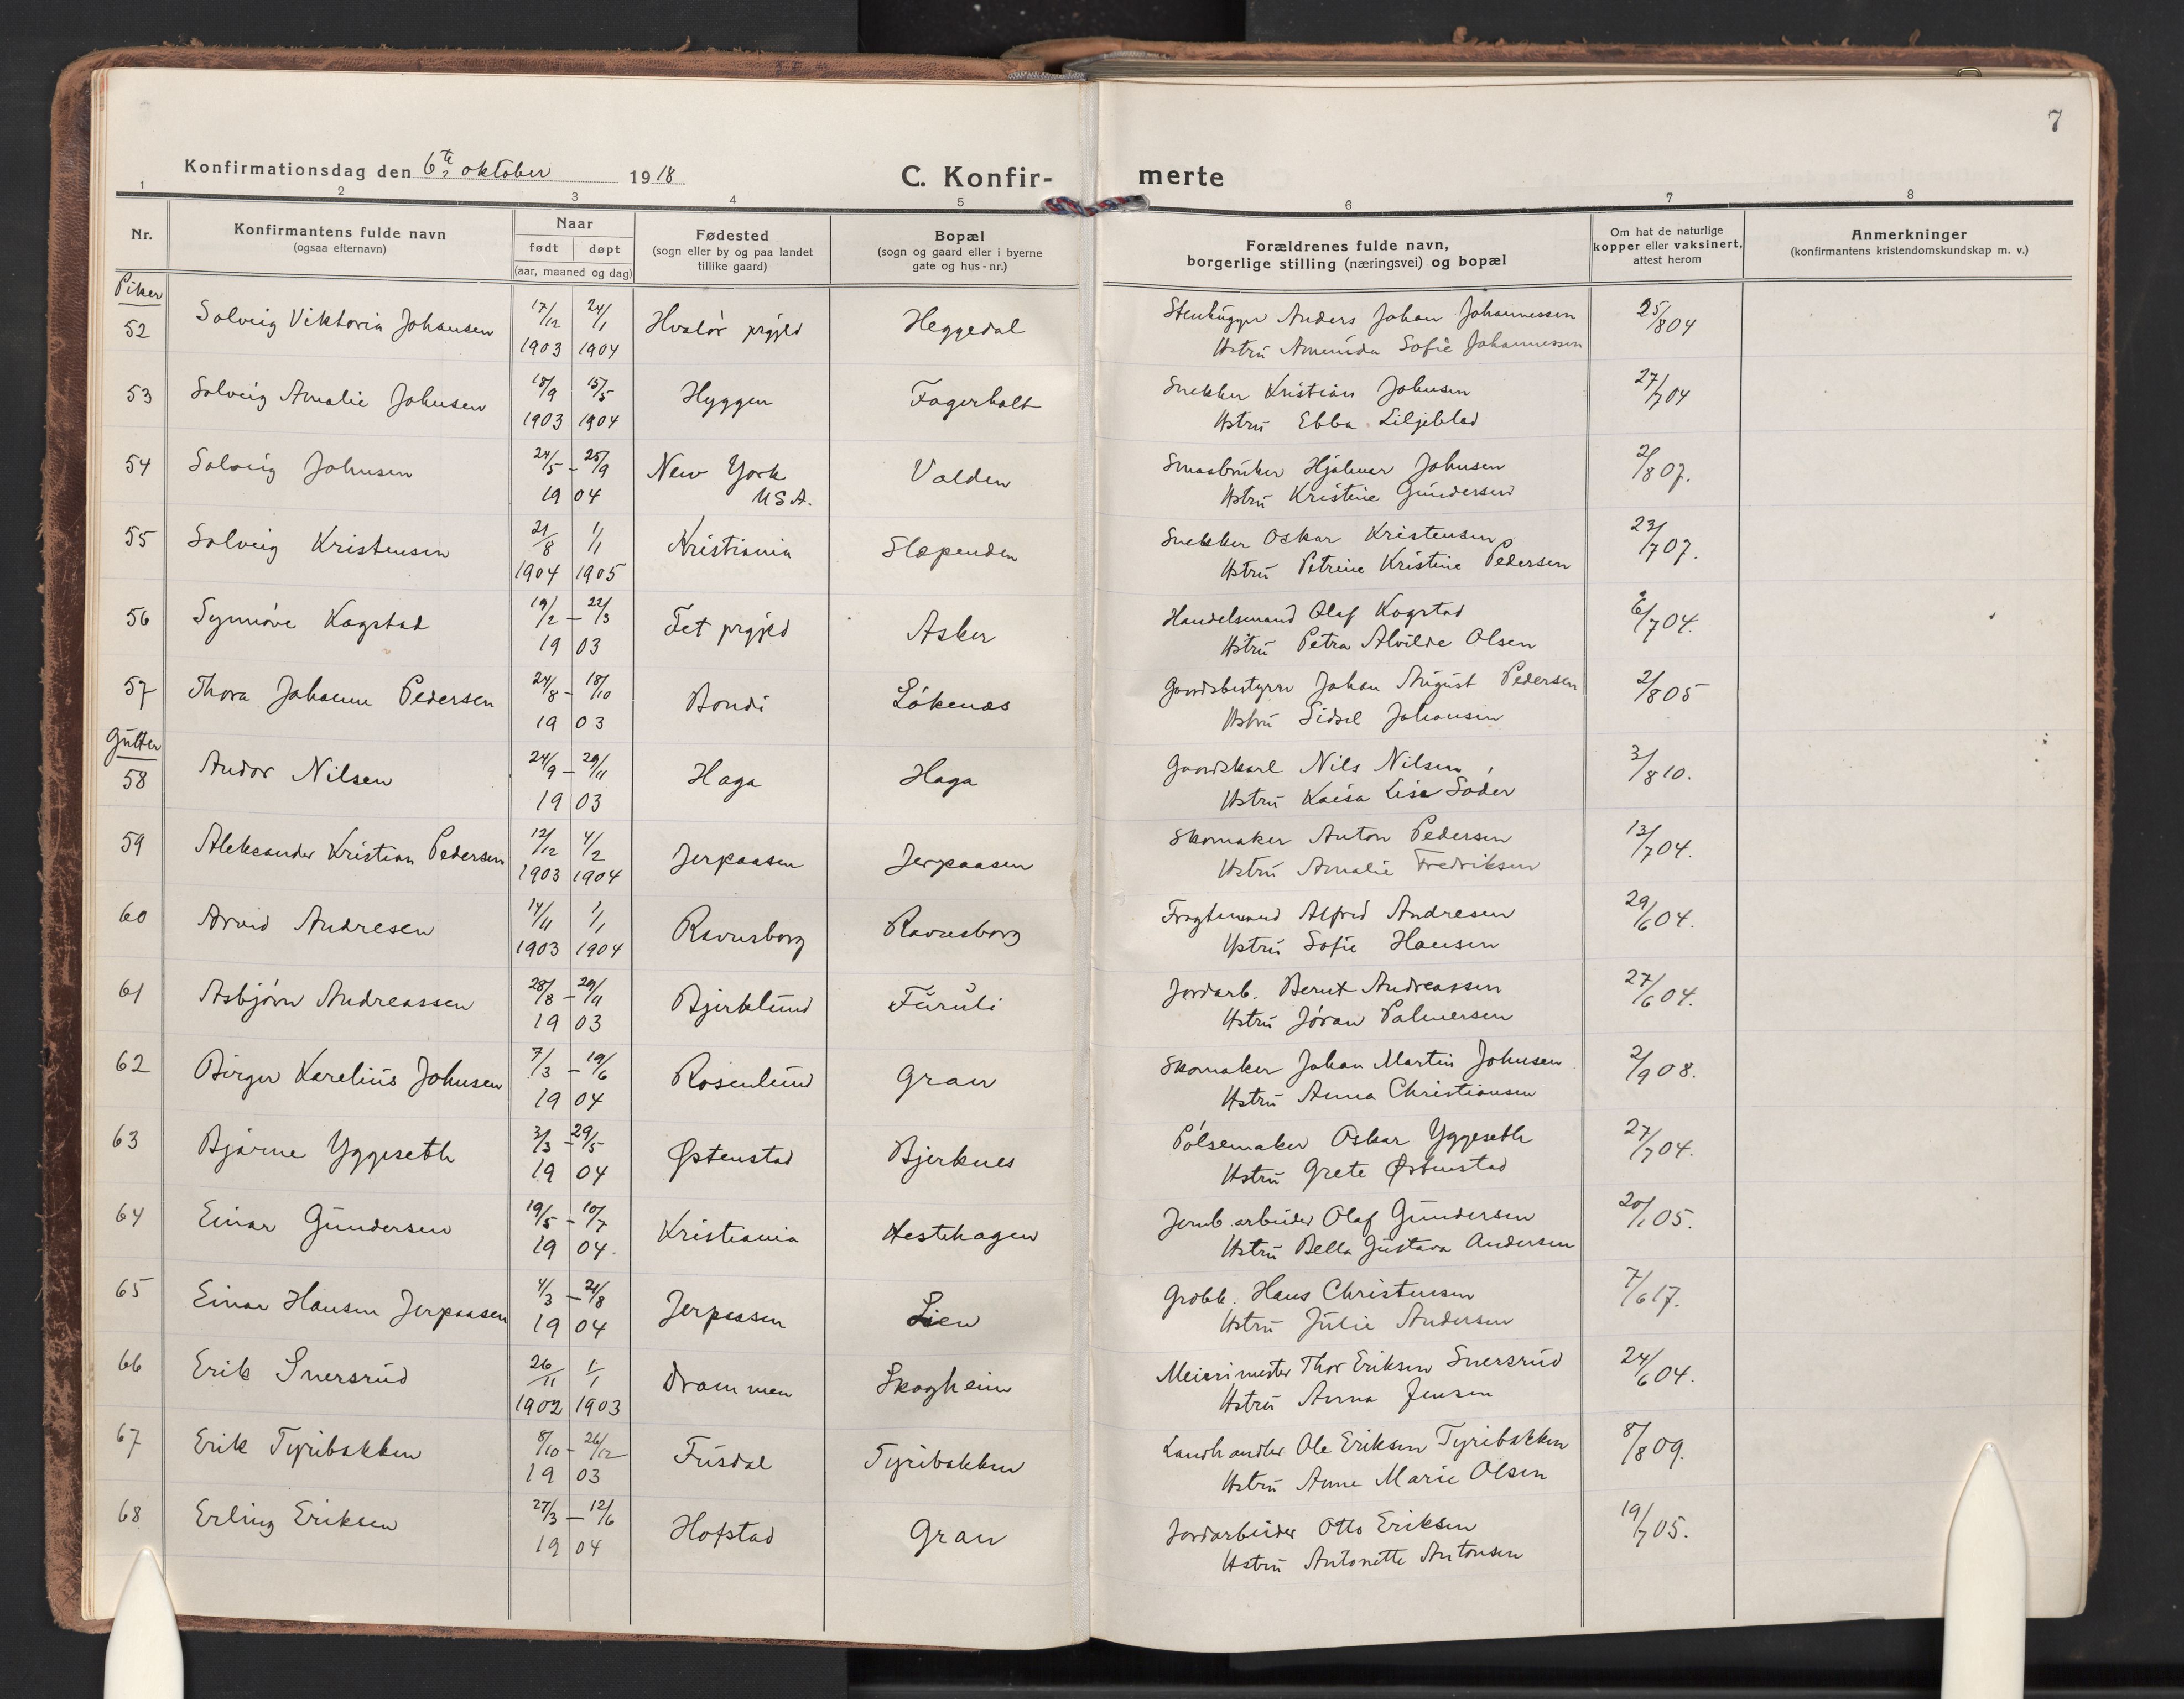 7
Konfirmationsdag den 6te oktober 1918
C. Konfirmerte
1 2 3 4 5 6 7 8
Nr.
Konfirmantens fulde navn (ogsaa efternavn)
Naar født døpt (aar, maaned og dag)
Fødested (sogn eller by og paa landet tillike gaard)
Bopæl (sogn og gaard eller i byerne gate og hus-nr.)
Forældrenes fulde navn, borgerlige stilling (næringsvei) og bopæl
Om hat de naturlige kopper eller vaksinert, attest herom
Anmerkninger (konfirmantens kristendomskundskap m. v.)
Piker
52 Solveig Viktoria Johansen 17/12 1903 24/1 1904 Hvalør prgjld Heggedal Stenhugger Anders Johan Johannessen 25/8 04
Hstru Amunda Sofie Johannessen
53 Solveig Amalie Johnsen 18/9 1903 15/5 1904 Hyggen Fagerholt Snekker Kristian Johnsen 27/7 04
Hstru Ebba Liljeblad
54 Solveig Johnsen 24/5 – 25/9 1904 New York U S A. Valden Smaabruker Hjalmar Johnsen 2/8 07.
Hstru Kristine Gundersen
55 Solveig Kristensen 21/8 1904 1/1 1905 Kristiania Slæpenden Snekker Oskar Kristensen 23/7 07.
Hstru Petrine Kristine Pedersen
56 Synnøve Kogstad 19/2 – 22/3 1903 Fet prgjld Asker Handelsmand Olaf Kogstad 6/7 04.
Hstru Petra Alvilde Olsen
57 Thora Johanne Pedersen 24/8 – 18/10 1903 Bondi Løkenæs Gaardsbestyrer Johan August Pedersen 2/8 05
Hstru Sidsel Johansen
Gutter
58 Andor Nilsen 24/9 – 29/11 1903 Haga Haga Gaardskarl Nils Nilsen, 3/8 10.
Hstru Kaisa Lisa Soder
59 Aleksander Kristian Pedersen 12/12 1903 4/2 1904 Jerpaasen Jerpaasen Skomaker Anton Pedersen 13/7 04.
Hstru Amalie Fredriksen
60 Arvid Andresen 14/11 1903 1/1 1904 Ravnsborg Ravnsborg Fragtmand Alfred Andresen 29/6 04.
Hstru Sofie Hansen
61 Asbjørn Andreassen 28/8 – 29/11 1903 Bjerklund Furuli Jordarb. Bernt Andreassen 27/6 04.
Hstru Jøran Palmersen
62 Birger Karelius Johnsen 7/3 – 19/6 1904 Rosenlund Gran Skomaker Johan Martin Johnsen 2/9 08.
Hstru Anna Christiansen
63 Bjarne Yggeseth 3/3 – 29/5 1904 Østenstad Bjerknes Pølsemaker Oskar Yggeseth 27/7 04.
Hstru Grete Østenstad
64 Einar Gundersen 19/5 – 10/7 1904. Kristiania Hestehagen Jernb.arbeider Olaf Gundersen 20/1 05.
Hstru Bella Gustava Andersen
65 Einar Hansen Jerpaasen 4/3 – 21/8 1904 Jerpaasen Lien Grdbr. Hans Christensen 7/6 17.
Hstru Julie Andersen
66 Erik Snersrud 26/11 1902 1/1 1903 Drammen Skogheim Meierimester Thor Eriksen Snersrud 24/6 04.
Hstru Anna Jensen
67 Erik Tyribakken 8/10 – 26/12 1903 Fusdal Tyribakken Landhandler Ole Eriksen Tyribakken 8/8 09.
Hstru Anne Marie Olsen
68 Erling Eriksen 27/3 – 12/6 1904 Hofstad Gran Jordarbeider Otto Eriksen 19/7 05.
Hstru Antonette Antonsen